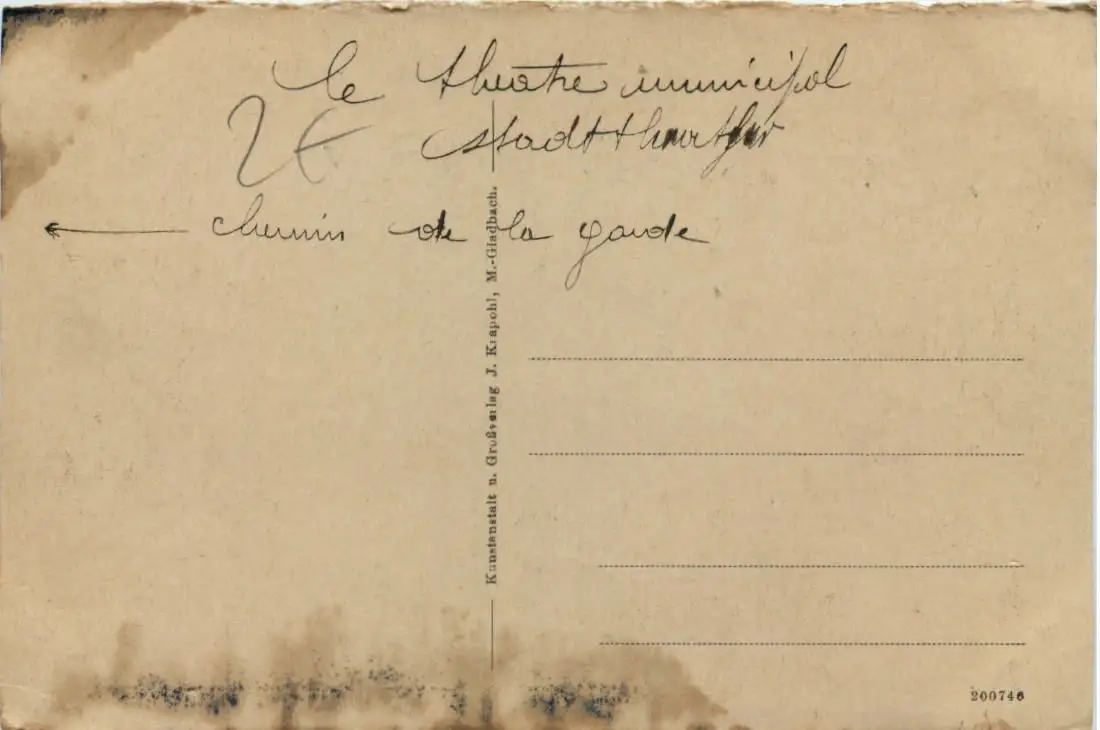 le theatre municipal
2€
stadttheather
chemin de la garde
Kunstanstalt u. Großverlag J. Krapohl, M.-Gladbach.
200746